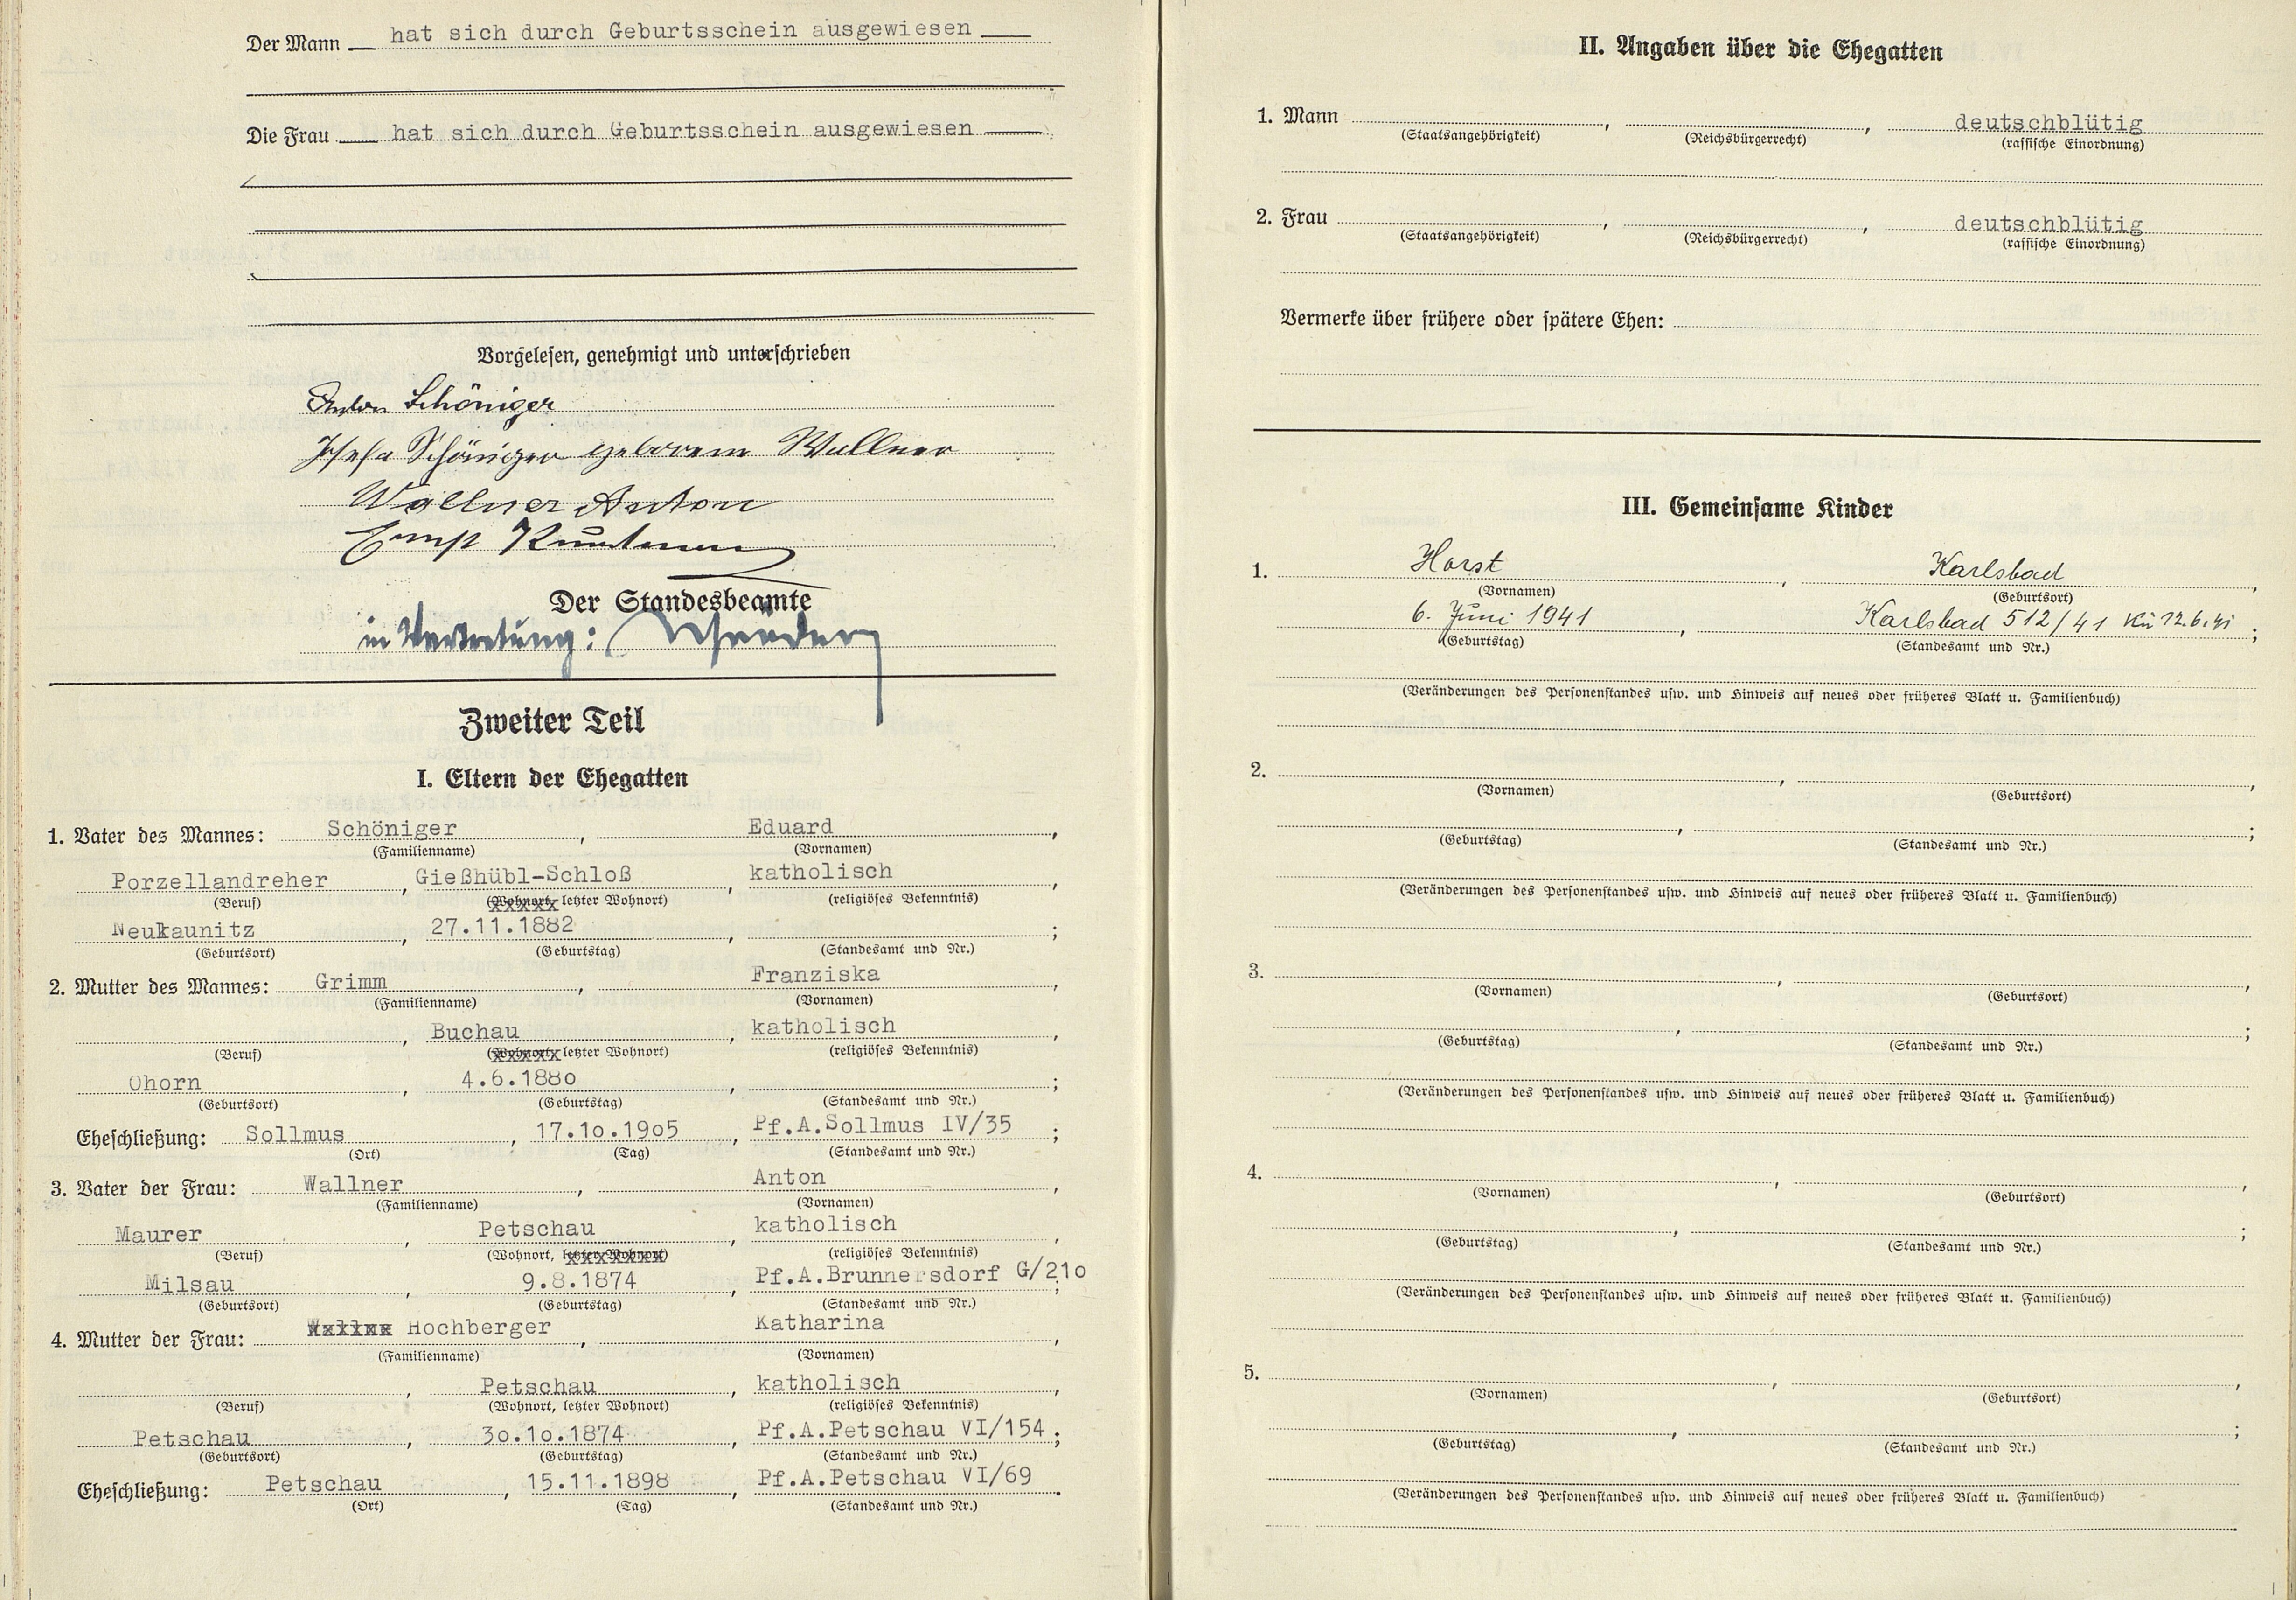 Der Mann hat sich durch Geburtsschein ausgewiesen
Die Frau hat sich durch Geburtsschein ausgewiesen
Vorgelesen, genehmigt und unterschrieben
Anton Schöniger
Josefa Schöniger geborene Wallner
Wallner Anton
Ernst
Der Standesbeamte
in Vertretung:
Zweiter Teil
I. Eltern der Ehegatten
1. Vater des Mannes: Schöniger, Eduard,
(Familienname) (Vornamen)
Porzellandreher, Gießhübl-Schloß, katholisch,
(Beruf) (Wohnort, letzter Wohnort) (religiöses Bekenntnis)
Neukaunitz, 27.11.1882, ;
(Geburtsort) (Geburtstag) (Standesamt und Nr.)
2. Mutter des Mannes: Grimm, Franziska,
(Familienname) (Vornamen)
, Buchau, katholisch,
(Beruf) (Wohnort, letzter Wohnort) (religiöses Bekenntnis)
Ohorn, 4.6.188o, ;
(Geburtsort) (Geburtstag) (Standesamt und Nr.)
Eheschließung: Sollmus, 17.1o.19o5, Pf.A.Sollmus IV/35;
(Ort) (Tag) (Standesamt und Nr.)
3. Vater der Frau: Wallner, Anton,
(Familienname) (Vornamen)
Maurer, Petschau, katholisch,
(Beruf) (Wohnort, letzter Wohnort) (religiöses Bekenntnis)
Milsau, 9.8.1874, Pf.A.Brunnersdorf G/21o;
(Geburtsort) (Geburtstag) (Standesamt und Nr.)
4. Mutter der Frau: Hochberger, Katharina,
(Familienname) (Vornamen)
, Petschau, katholisch,
(Beruf) (Wohnort, letzter Wohnort) (religiöses Bekenntnis)
Petschau, 3o.1o.1874, Pf.A.Petschau VI/154;
(Geburtsort) (Geburtstag) (Standesamt und Nr.)
Eheschließung: Petschau, 15.11.1898, Pf.A.Petschau VI/69.
(Ort) (Tag) (Standesamt und Nr.)
II. Angaben über die Ehegatten
1. Mann , , deutschblütig
(Staatsangehörigkeit) (Reichsbürgerrecht) (rassische Einordnung)
2. Frau , , deutschblütig
(Staatsangehörigkeit) (Reichsbürgerrecht) (rassische Einordnung)
Vermerke über frühere oder spätere Ehen:
III. Gemeinsame Kinder
1. Horst, Karlsbad,
(Vornamen) (Geburtsort)
6. Juni 1941, Karlsbad 512/41 Kü 12.6.41;
(Geburtstag) (Standesamt und Nr.)
(Veränderungen des Personenstandes usw. und Hinweis auf neues oder früheres Blatt u. Familienbuch)
2. , ,
(Vornamen) (Geburtsort)
, ;
(Geburtstag) (Standesamt und Nr.)
(Veränderungen des Personenstandes usw. und Hinweis auf neues oder früheres Blatt u. Familienbuch)
3. , ,
(Vornamen) (Geburtsort)
, ;
(Geburtstag) (Standesamt und Nr.)
(Veränderungen des Personenstandes usw. und Hinweis auf neues oder früheres Blatt u. Familienbuch)
4. , ,
(Vornamen) (Geburtsort)
, ;
(Geburtstag) (Standesamt und Nr.)
(Veränderungen des Personenstandes usw. und Hinweis auf neues oder früheres Blatt u. Familienbuch)
5. , ,
(Vornamen) (Geburtsort)
, ;
(Geburtstag) (Standesamt und Nr.)
(Veränderungen des Personenstandes usw. und Hinweis auf neues oder früheres Blatt u. Familienbuch)